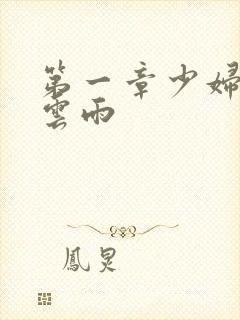 第一章少婦
雲雨
鳳炅